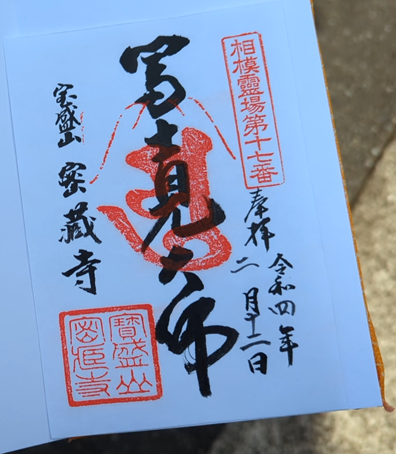 相模靈場第十七番
奉拝
令和四年
二月十二日
真大師
宝盛山
密蔵寺
寶盛山